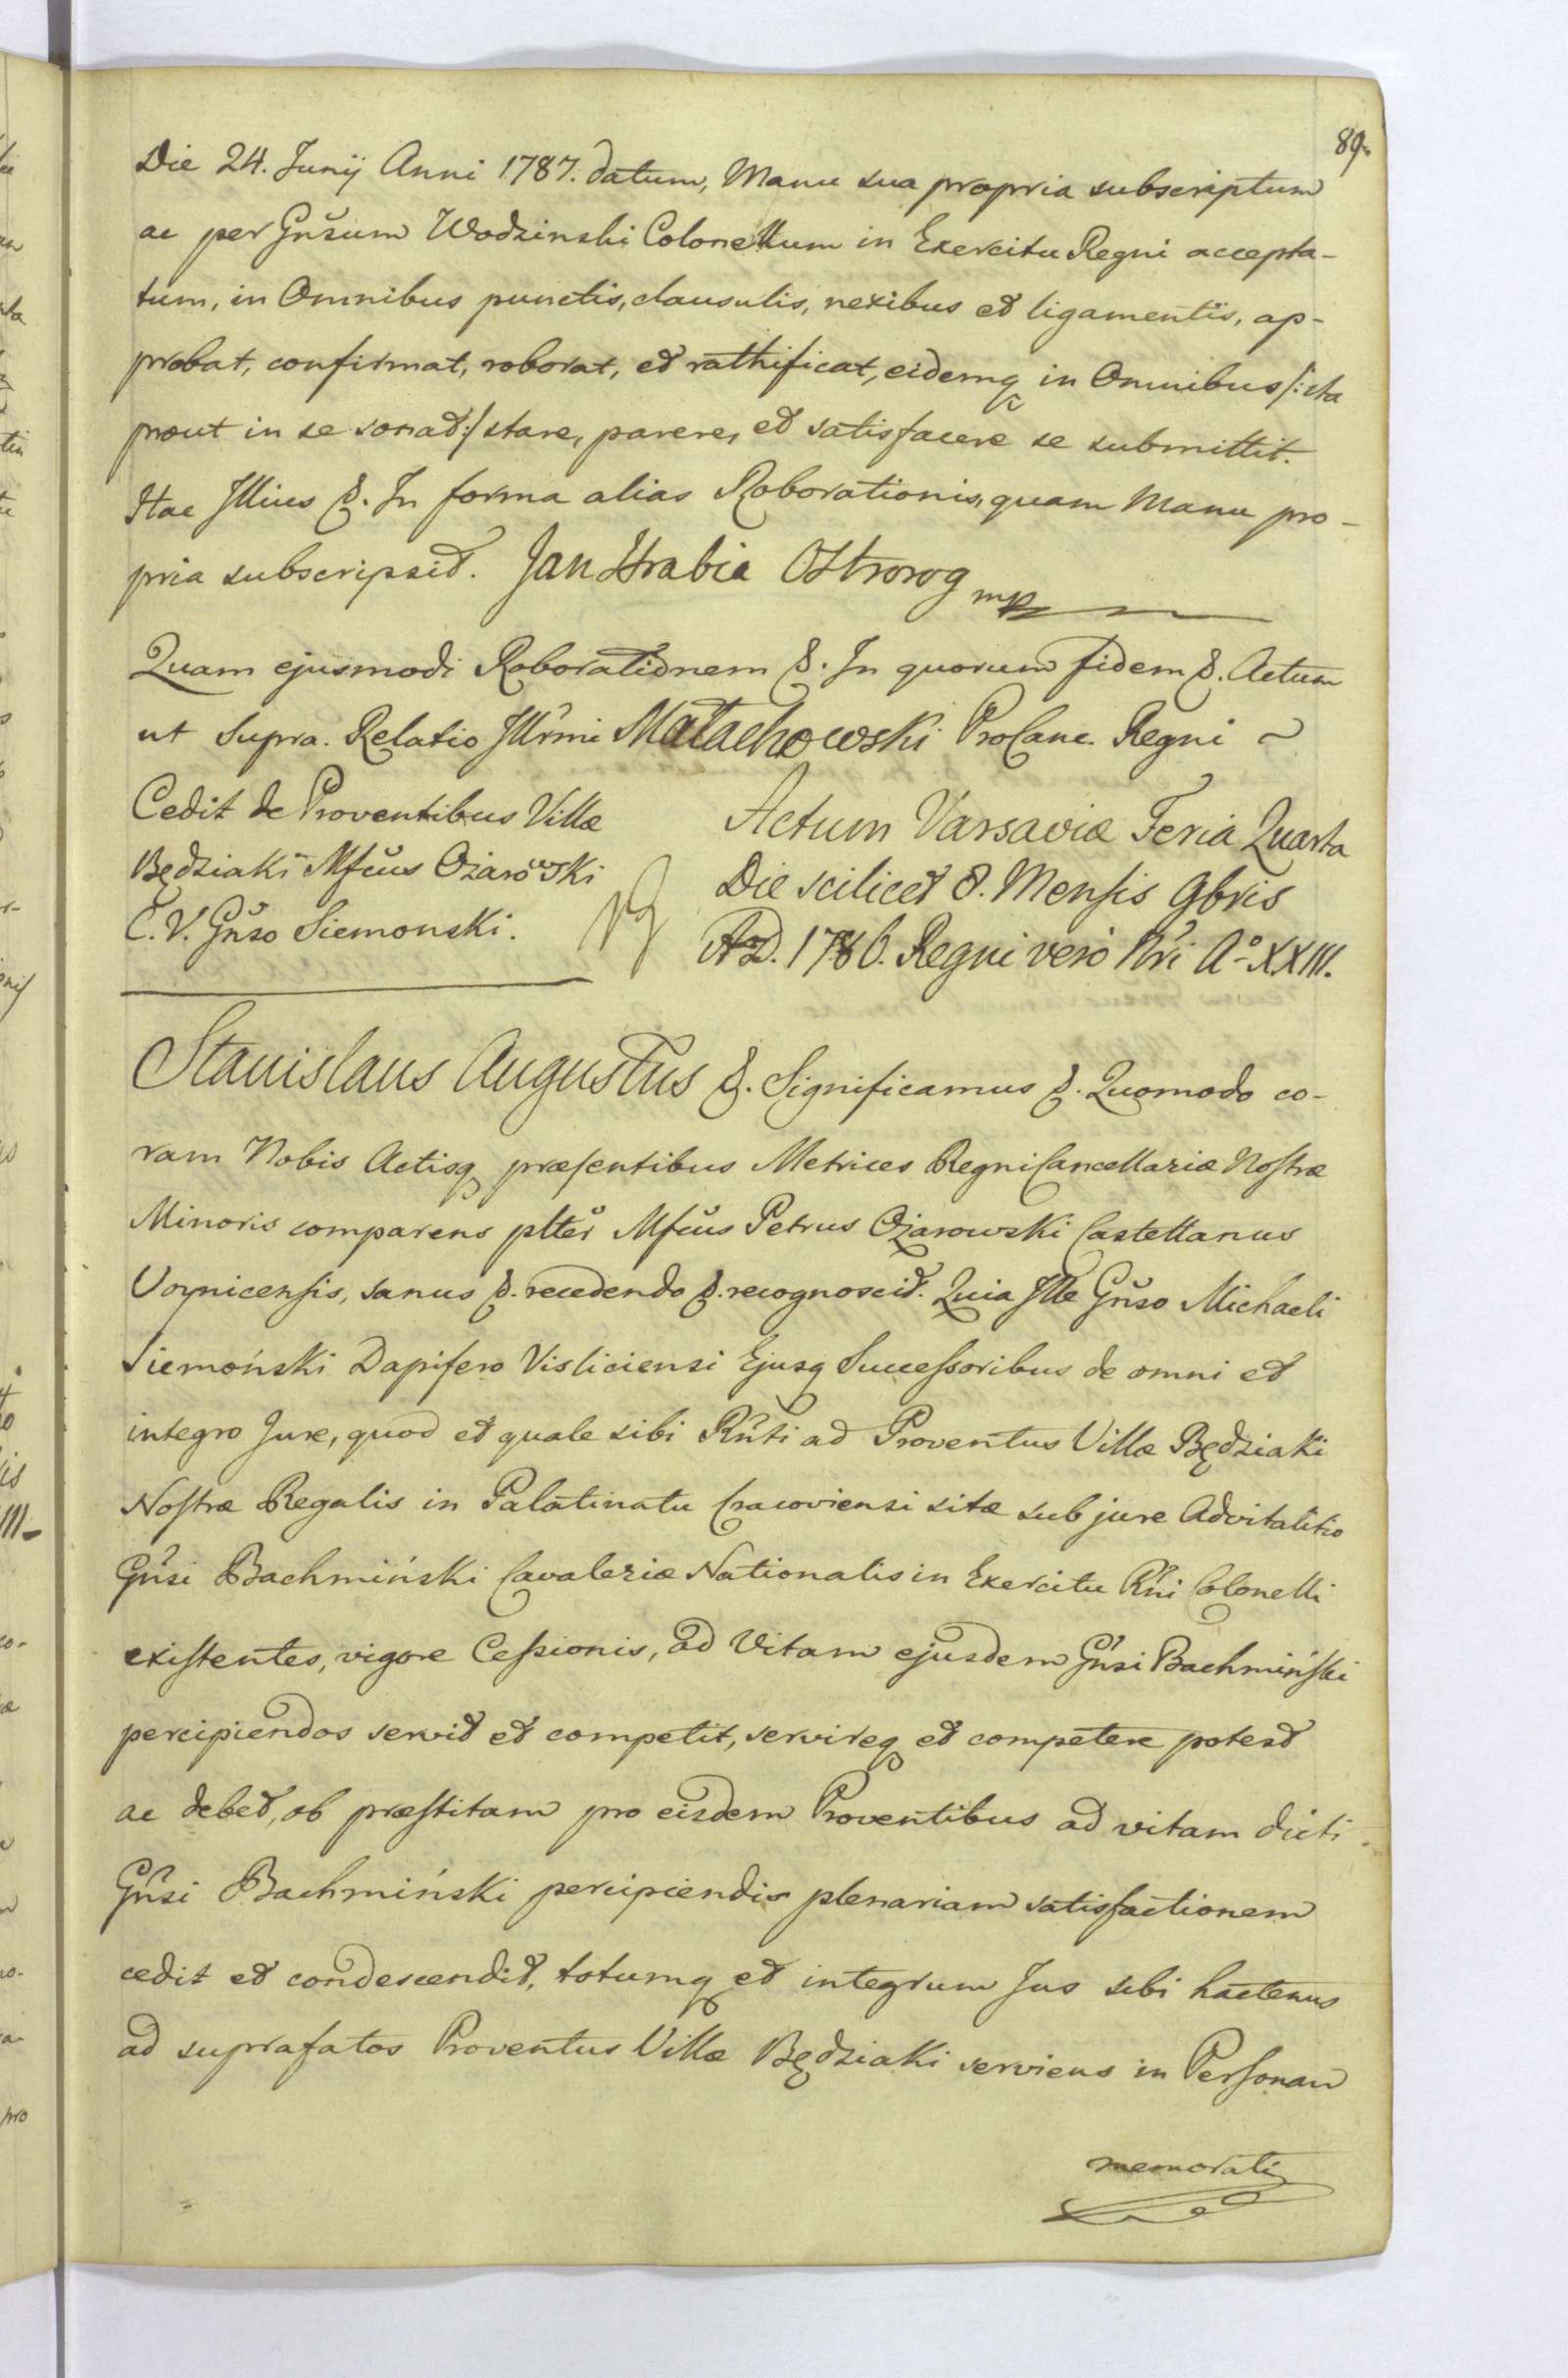 89.
Die 24. Junij Anni 1787. datum, Manu sua propria subscriptum
ac per Gnsum Wodzinski Colonellum in Exercitu Regni accepta-
tum, in Omnibus punctis, clausulis, nexibus et ligamentis, ap-
probat, confirmat, roborat, et rathificat, eidemq in Omnibus /: ita
prout in se sonat :/ stare, parere, et satisfacere se submittit.
Hac Illius &. In forma alias Roborationis, quam Manu pro-
pria subscripsit. Jan Hrabia Ostrorog mp
Quam ejusmodi Roborationem &. In quorum fidem &. Actum
ut Supra. Relatio Illrmi Małachowski ProCanc. Regni ~
Cedit de Proventibus Villæ
Będziaki Mfcus Ożarowski
C. V. Gnso Siemonski.
Actum Varsaviæ Feria Quarta
Die scilicet 8. Mensis 9bris
A. D. 1786. Regni vero Nri Aº XXIII.
Stanislaus Augustus &. Significamus &. Quomodo co-
ram Nobis Actisq præsentibus Metrices Regni Cancellariæ Nostræ
Minoris comparens plter Mfcus Petrus Ożarowski Castellanus
Voynicensis, sanus &. recedendo &. recognoscit. Quia Ille Gnso Michaeli
Siemoński Dapifero Visliciensi Ejusq Successoribus de omni et
integro Jure, quod et quale sibi Rnti ad Proventus Villæ Będziaki
Nostræ Regalis in Palatinatu Cracoviensi sitæ sub jure Advitalitio
Gnsi Bachmiński Cavaleriæ Nationalis in Exercitu Rni Colonelli
existentes, vigore Cessionis, ad Vitam ejusdem Gnsi Bachmiński
percipiendos servit et competit, servireq et competere potest
ac debet, ob præstitam pro eisdem Proventibus ad vitam dicti
Gnsi Bachmiński percipiendis plenariam satisfactionem
cedit et condescendit, totumq et integrum Jus sibi hactenus
ad suprafatos Proventus Villæ Będziaki serviens in Personam
memorati